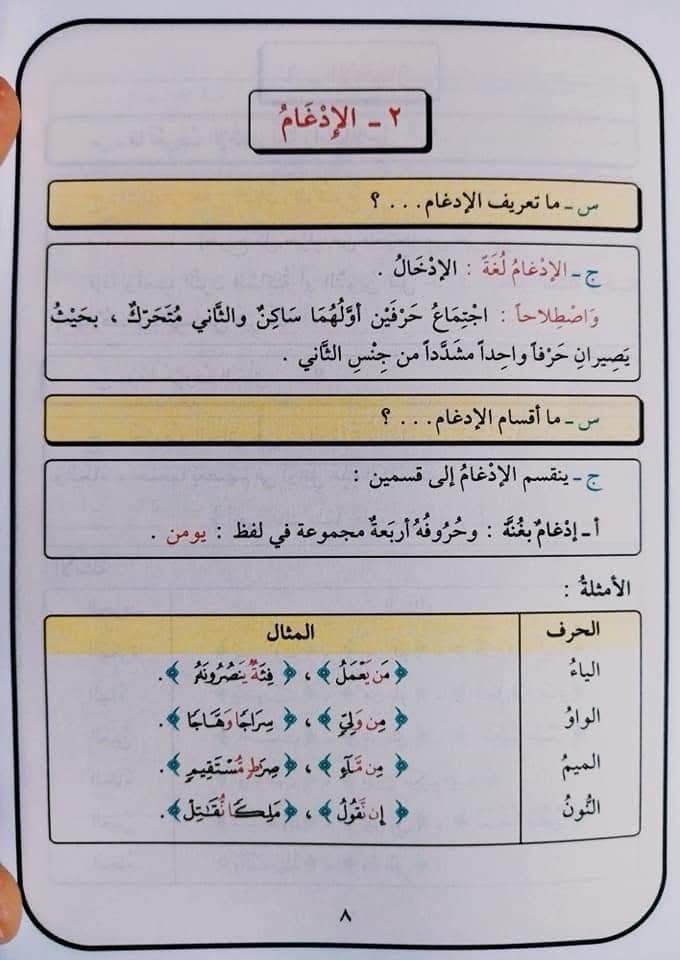 ٢ ـ الإِدْغَامُ
س ـ ما تعريف الإدغام. . . ؟
ج ـ الإدْغامُ لُغَةً : الإدْخَالُ .
وَاصْطِلاحاً : اجْتِمَاعُ حَرْفَيْن أوَّلُهُمَا سَاكِنٌ والثَّاني مُتَحَرِّكٌ ، بحَيْثُ
يَصِيرانِ حَرْفاً واحِداً مشَدَّداً من جِنْسِ الثَّاني .
س ـ ما أقسام الإدغام. . . ؟
ج ـ ينقسم الإدْغَامُ إلى قسمين :
أ ـ إدْغامٌ بغُنَّة : وحُرُوفُهُ أربَعَةٌ مجموعة في لفظ : يومن .
الأمثلةُ :
الحرف المثال
الياءُ ﴿ مَن يَعْمَلُ ﴾ ، ﴿ فِئَةٌ يَنصُرُونَهُ ﴾ .
الواوُ ﴿ مِن وَلِيٍّ ﴾ ، ﴿ سِرَاجًا وَهَّاجًا ﴾ .
الميمُ ﴿ مِن مَّآءٍ ﴾ ، ﴿ صِرَٰطٍ مُّسْتَقِيمٍ ﴾ .
النُّونُ ﴿ إِن نَّقُولُ ﴾ ، ﴿ مَلِكًا نُّقَٰتِلْ ﴾ .
٨